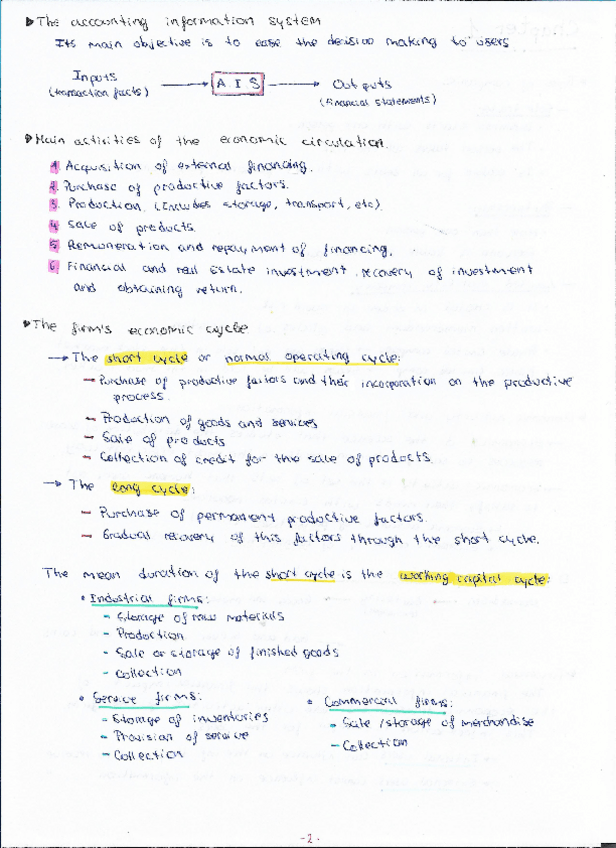 ▶The accounting information system
Its main objective is to ease the decision making to users
Inputs → AIS → Outputs
(transaction facts) (financial statements)
▶Main activities of the economic circulation.
1 Acquisition of external financing.
2 Purchase of productive factors.
3 Production. (Includes storage, transport, etc)
4 Sale of products.
5 Remuneration and repayment of financing.
6 Financial and real Estate investment, recovery of investment
and obtaining return.
▶The firm's economic cycle
→ The short cycle or normal operating cycle:
- Purchase of productive factors and their incorporation on the productive
process.
- Production of goods and services
- Sale of products
- Collection of credit for the sale of products.
→ The long cycle:
- Purchase of permanent productive factors.
- Gradual recovery of this factors through the short cycle.
The mean duration of the short cycle is the working capital cycle:
• Industrial firms:
- Storage of raw materials
- Production
- Sale or storage of finished goods
- Collection
• Service firms:
- Storage of inventories
- Provision of service
- Collection
• Commercial firms:
- Sale/storage of merchandise
- Collection
-2-